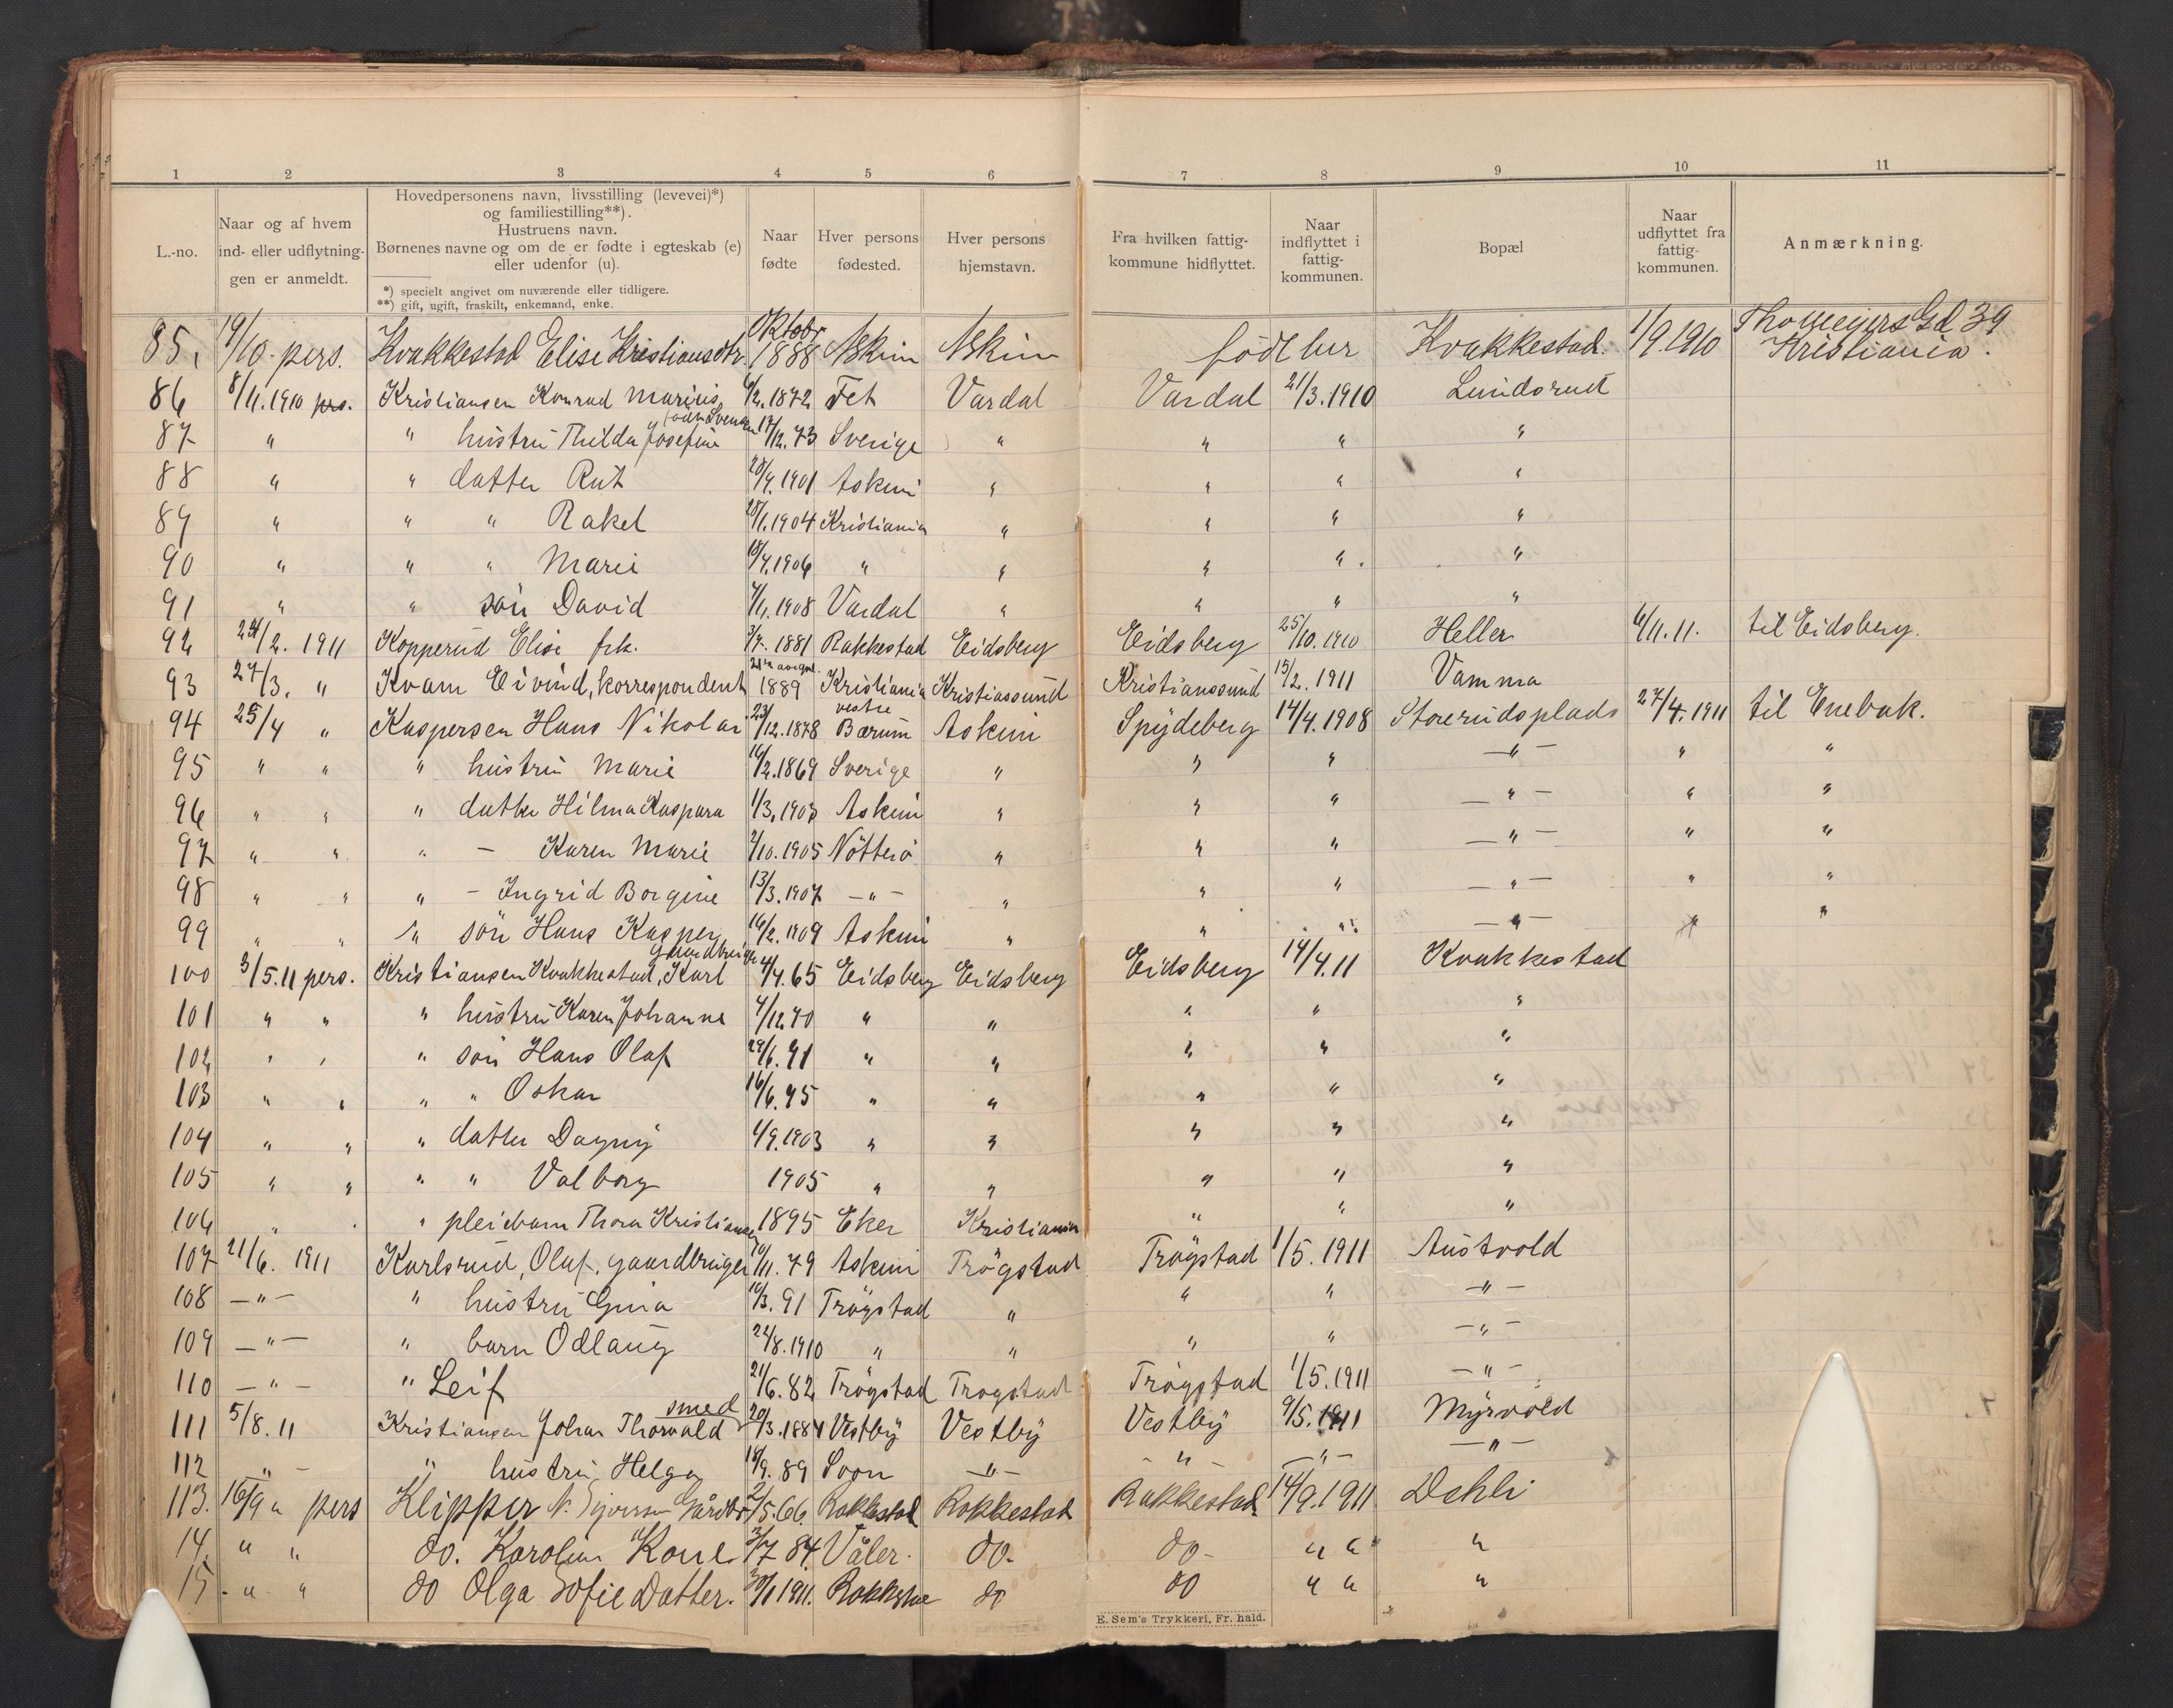 1 2 3 4 5 6 7 8 9 10 11
L.-no. | Naar og af hvem ind- eller udflytningen er anmeldt. | Hovedpersonens navn, livsstilling (levevei)*) og familiestilling**). Hustruens navn. Børnenes navne og om de er fødte i egteskab (e) eller udenfor (u). *) specielt angivet om nuværende eller tidligere. **) gift, ugift, fraskilt, enkemand, enke. | Naar fødte | Hver persons fødested. | Hver persons hjemstavn. | Fra hvilken fattigkommune hidflyttet. | Naar indflyttet i fattigkommunen. | Bopæl | Naar udflyttet fra fattigkommunen. | Anmærkning.
85. 19/10. pers. Kvakkestad Elise Kristiansdtr. Oktobr 1888 Askim Askim født her Kvakkestad. 1/9.1910 Thomeyers Gd 39 Kristiania.
86 8/11.1910 prs. Kristiansen Konrad Marius 6/2.1872 Fet Vardal Vardal 21/3.1910 Lundsrud
87 " " hustru Thilda Josefine født Svensen 17/12.73 Sverige " " " "
88 " " datter Rut 28/9.1901 Askim " " " "
89 " " " Rakel 28/1.1904 Kristiania " " " "
90 " " " Marie 18/4.1906 " " " " "
91 " " søn David 4/11.1908 Vardal " " " "
92 24/2. 1911 Kopperud Elise frk. 3/7. 1881 Rakkestad Eidsberg Eidsberg 25/10.1910 Heller 6/11.11. til Eidsberg.
93 27/3. " Kvam Eivind, korrespondent 1889 Kristiania Kristiassund Kristianssund 15/2.1911 Vamma
94 25/4 " Kaspersen Hans Nikolai 23/12.1878 vestre Bærum Askim Spydeberg 14/4.1908 Storerudsplads 27/4.1911 til Enebak.
95 " " " hustru Marie 16/2.1869 Sverige " " " —"— " "
96 " " " datter Hilma Kaspara 1/3.1903 Askim " " " —"— " "
97 " " " — Karen Marie 2/10.1905 Nötterö " " " —"— " "
98 " " " — Ingrid Borgine 13/3.1907 —"— " " " —"— " "
99 " " " søn Hans Kasper 16/2.1909 Askim " " " —"— " "
100 3/5.11 pers. Kristiansen Kvakkestad, Karl gaardbruger 4/4.65 Eidsberg Eidsberg Eidsberg 14/4.11 Kvakkestad
101 " " " hustru Karen Johanne 4/12.70 " " " " "
102 " " " søn Hans Olaf 29/6.91 " " " " "
103 " " " " Oskar 16/6.95 " " " " "
104 " " " datter Dagny 4/9.1903 " " " " "
105 " " " " Valborg 1905 " " " " "
106 " " " pleiebarn Thora Kristiansen 1895 Eker Kristiania " " "
107 21/6. 1911 Karlsrud, Olaf, gaardbruger 19/11.79 Askim Trögstad Trögstad 1/5.1911 Austvold
108 —"— " hustru Gina 10/3.91 Trögstad " " " —"—
109 —"— " barn Odlaug 22/8.1910 " " " " —"—
110 —"— " Leif 21/6.82 Trögstad Trogstad Trögstad 1/5.1911 —"—
111 5/8.11 Kristiansen Johan Thorvald smed 20/3.1884 Vestby Vestby Vestby 9/5.1911 Myrvold
112 " — " hustru Helga 18/9.89 Soon —"— —"— —"— —"—
113. 16/9 " pers Klipper N. Gårdbr 2/5.66. Rakkestad Rakkestad Rakkestad 14/9.1911 Dehli
14 " " do. Karoline Kone 3/7 84 Våler. do- do- " " "
15 - " " do Olga Sofie Datter. 30/1 1911. Rakkestad do do " " "
E. Sem's Trykkeri, Fr. hald.